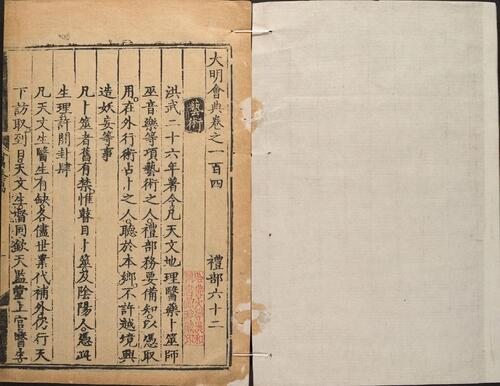 大明會典卷之一百四
禮部六十二
藝術
洪武二十六年著令凡天文地理醫藥卜筮師
巫音樂等項藝術之人禮部務要備知以憑取
用在外行術占卜之人聽於本鄉不許越境興
造妖妄等事
凡卜筮者舊有禁惟瞽目卜筮及陰陽人憑此
生理許開卦肆
凡天文生醫生有缺各儘世業代補外仍行天
下訪取到日天文生督同欽天監堂上官醫士